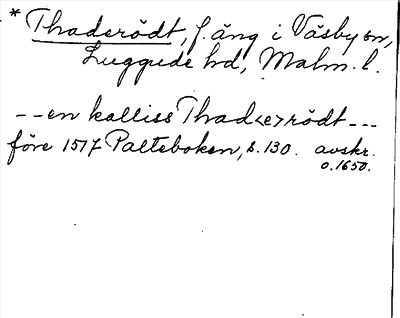 * Thaderödt, f. äng i Väsby sn,
Luggude hd, Malm. l.
--en kalliss Thad<e>rödt---
före 1517 Palteboken, s. 130. avskr.
o. 1650.